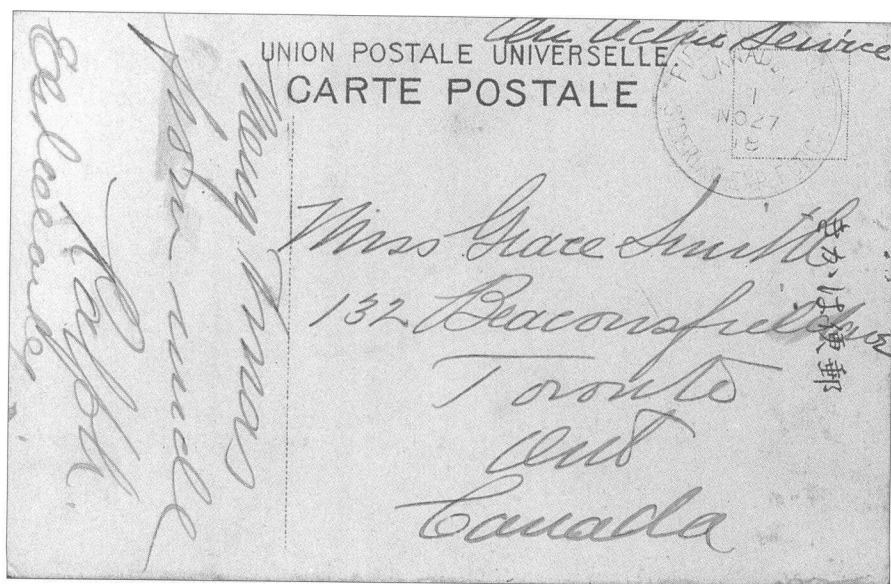 On Active Service
UNION POSTALE UNIVERSELLE.
CARTE POSTALE
NO 27
18
SIBERIAN EXP.
Miss Grace Smith
132 Beaconsfield Ave
Toronto
Ont
Canada
きがは便郵
Merry Xmas
from uncle
Ralph